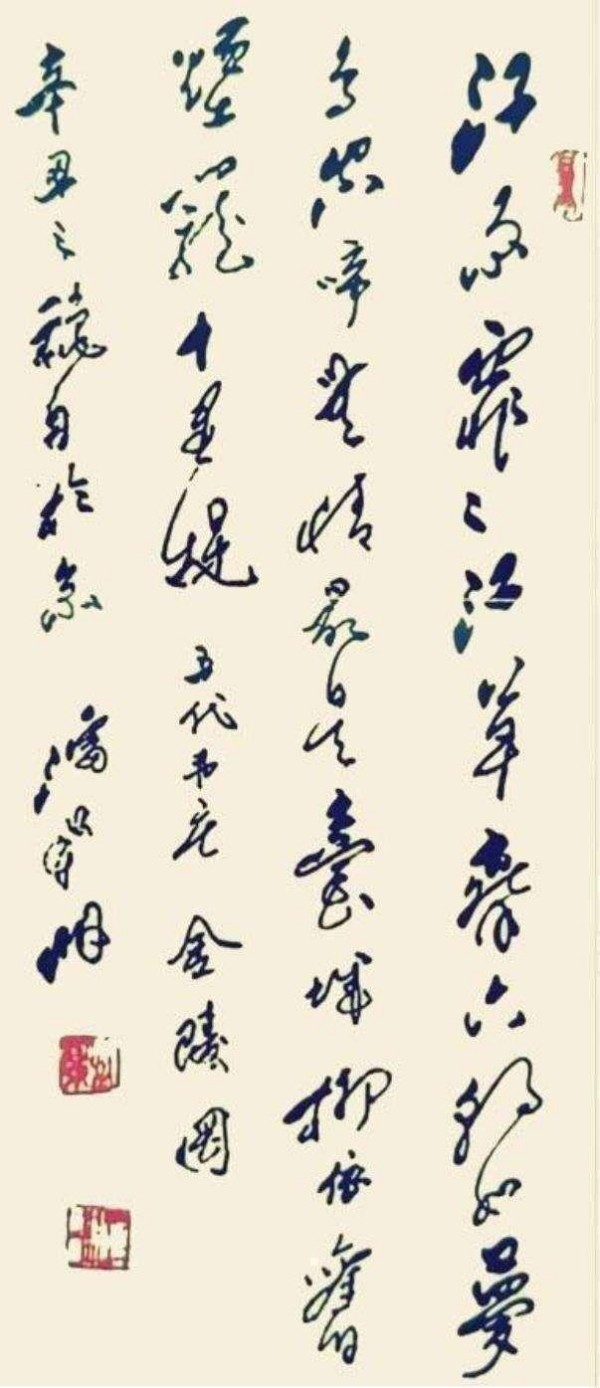 江雨霏々江草齊六朝如夢
鳥空啼無情最是臺城柳依舊
煙籠十里堤 五代韦庄 金陵圖
辛丑之穐月於京 潘明